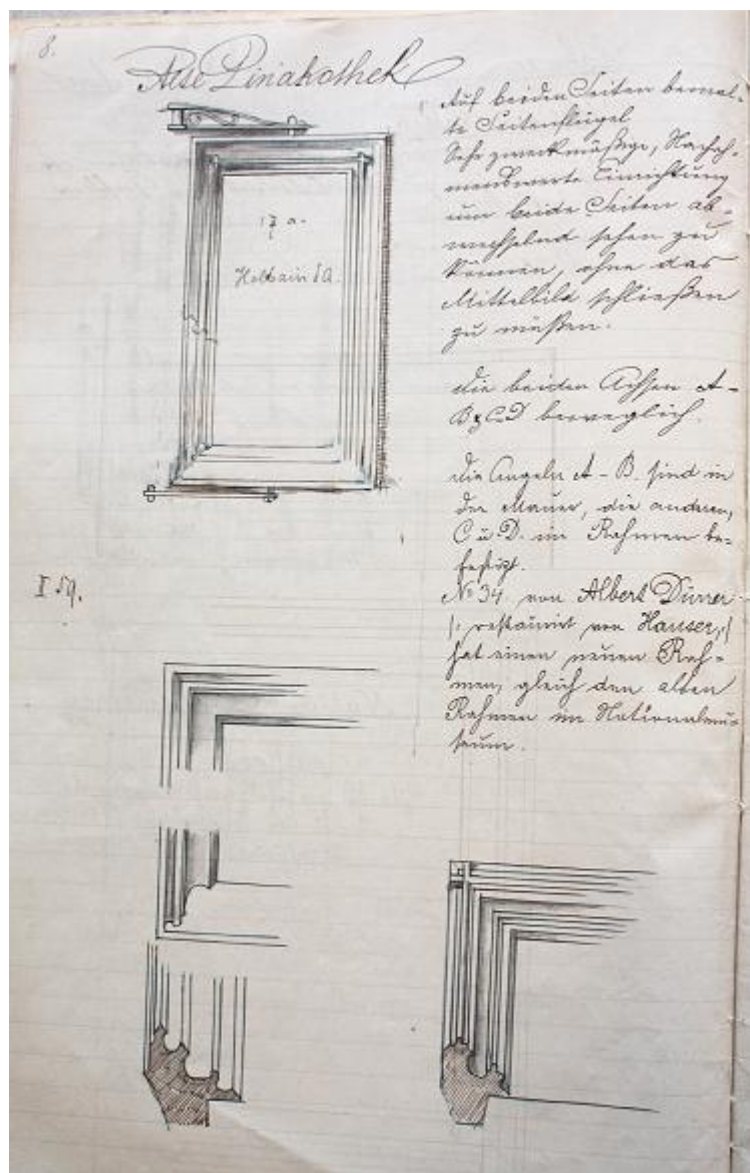 8.
Alte Pinakothek
Auf beiden Seiten bemal-
te Seitenflügel
Sehr zweckmäßige, Nachah-
menswerte Einrichtung
um beide Seiten ab-
wechselnd sehen zu
können, ohne das
Mittelbild schließen
zu müßen.
17 a.
Holbein d. Ä.
Die beiden Achsen A-
B & C D beweglich.
Die Angeln A - B. sind in
der Mauer, die anderen,
C u. D. im Rahmen be-
festigt.
No 34 von Albert Dürer
/: restaurirt von Hauser, /
hat einen neuen Rah-
men, gleich den alten
Rahmen im Nationalmu-
seum.